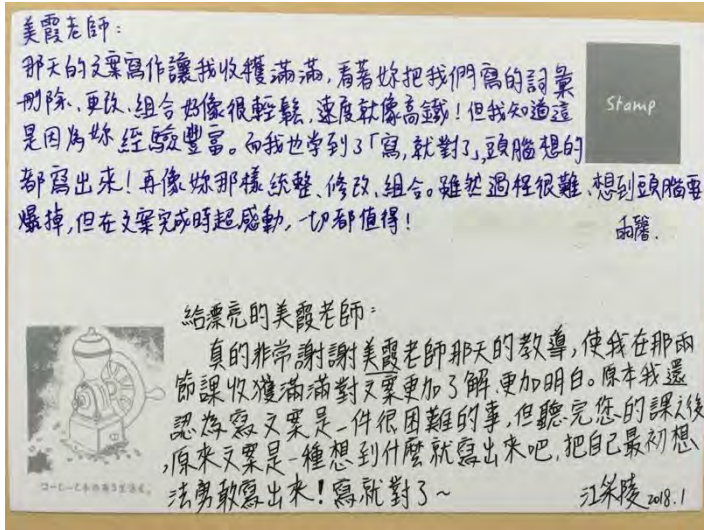 美霞老師：
那天的文案寫作讓我收穫滿滿，看著妳把我們寫的詞彙
刪除、更改、組合好像很輕鬆，速度就像高鐵！但我知道這
是因為妳經驗豐富。而我也学到了「寫，就對了」，頭腦想的
都寫出來！再像妳那樣統整、修改、組合。雖然過程很難、想到頭腦要
爆掉，但在文案完成時超感動，一切都值得！
雨馨.
Stamp
給漂亮的美霞老師：
真的非常謝謝美霞老師那天的教導，使我在那兩
節課收獲滿滿對文案更加了解、更加明白。原本我還
認為寫文案是一件很困難的事，但聽完您的課之後
，原來文案是一種想到什麼就寫出來吧，把自己最初想
法勇敢寫出來！寫就對了～
江采陵 2018.1
コーヒーと本のある生活。